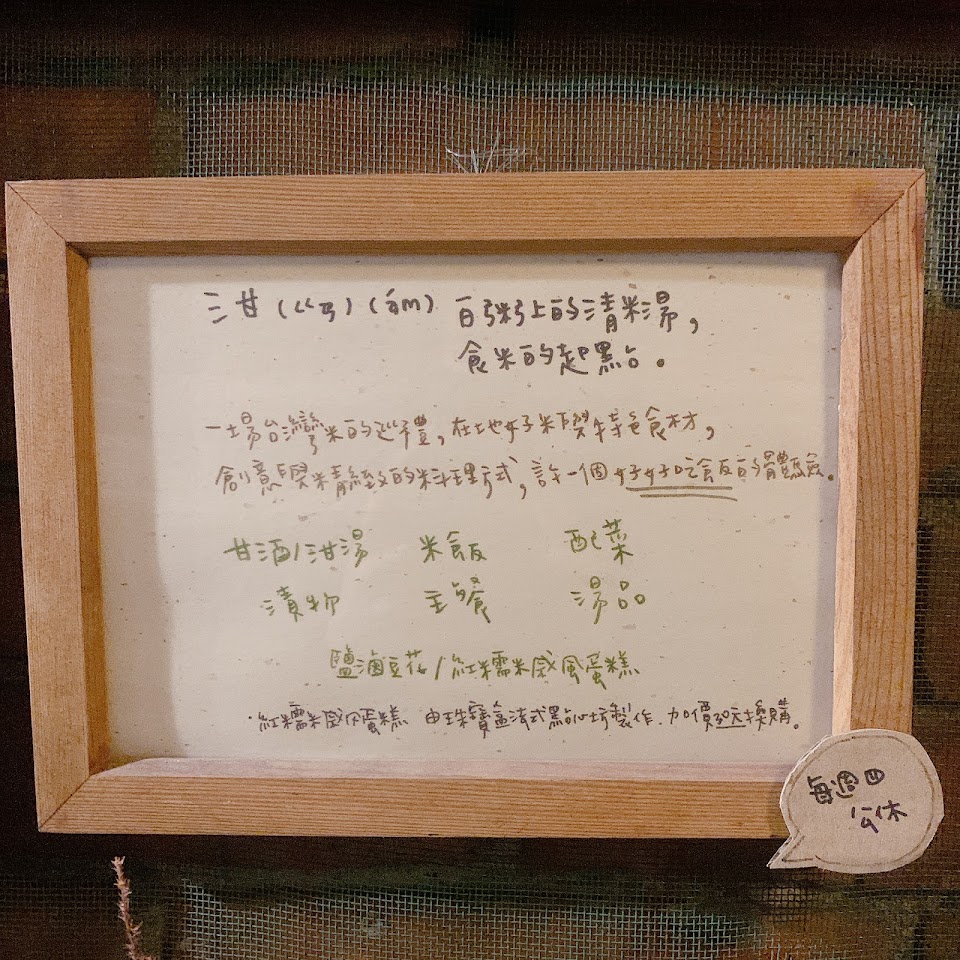 泔(ㄍㄢ)(ám) 白粥上的清米湯,
食米的起點。
一場台灣米的巡禮,在地好米與特色食材,
創意與精緻的料理方式,許一個好好吃飯的體驗。
甘酒/泔湯 米飯 配菜
漬物 主餐 湯品
鹽滷豆花/紅糯米戚風蛋糕
·紅糯米戚風蛋糕 由珠寶盒法式點心坊製作,加價30元換購。
每週四
公休